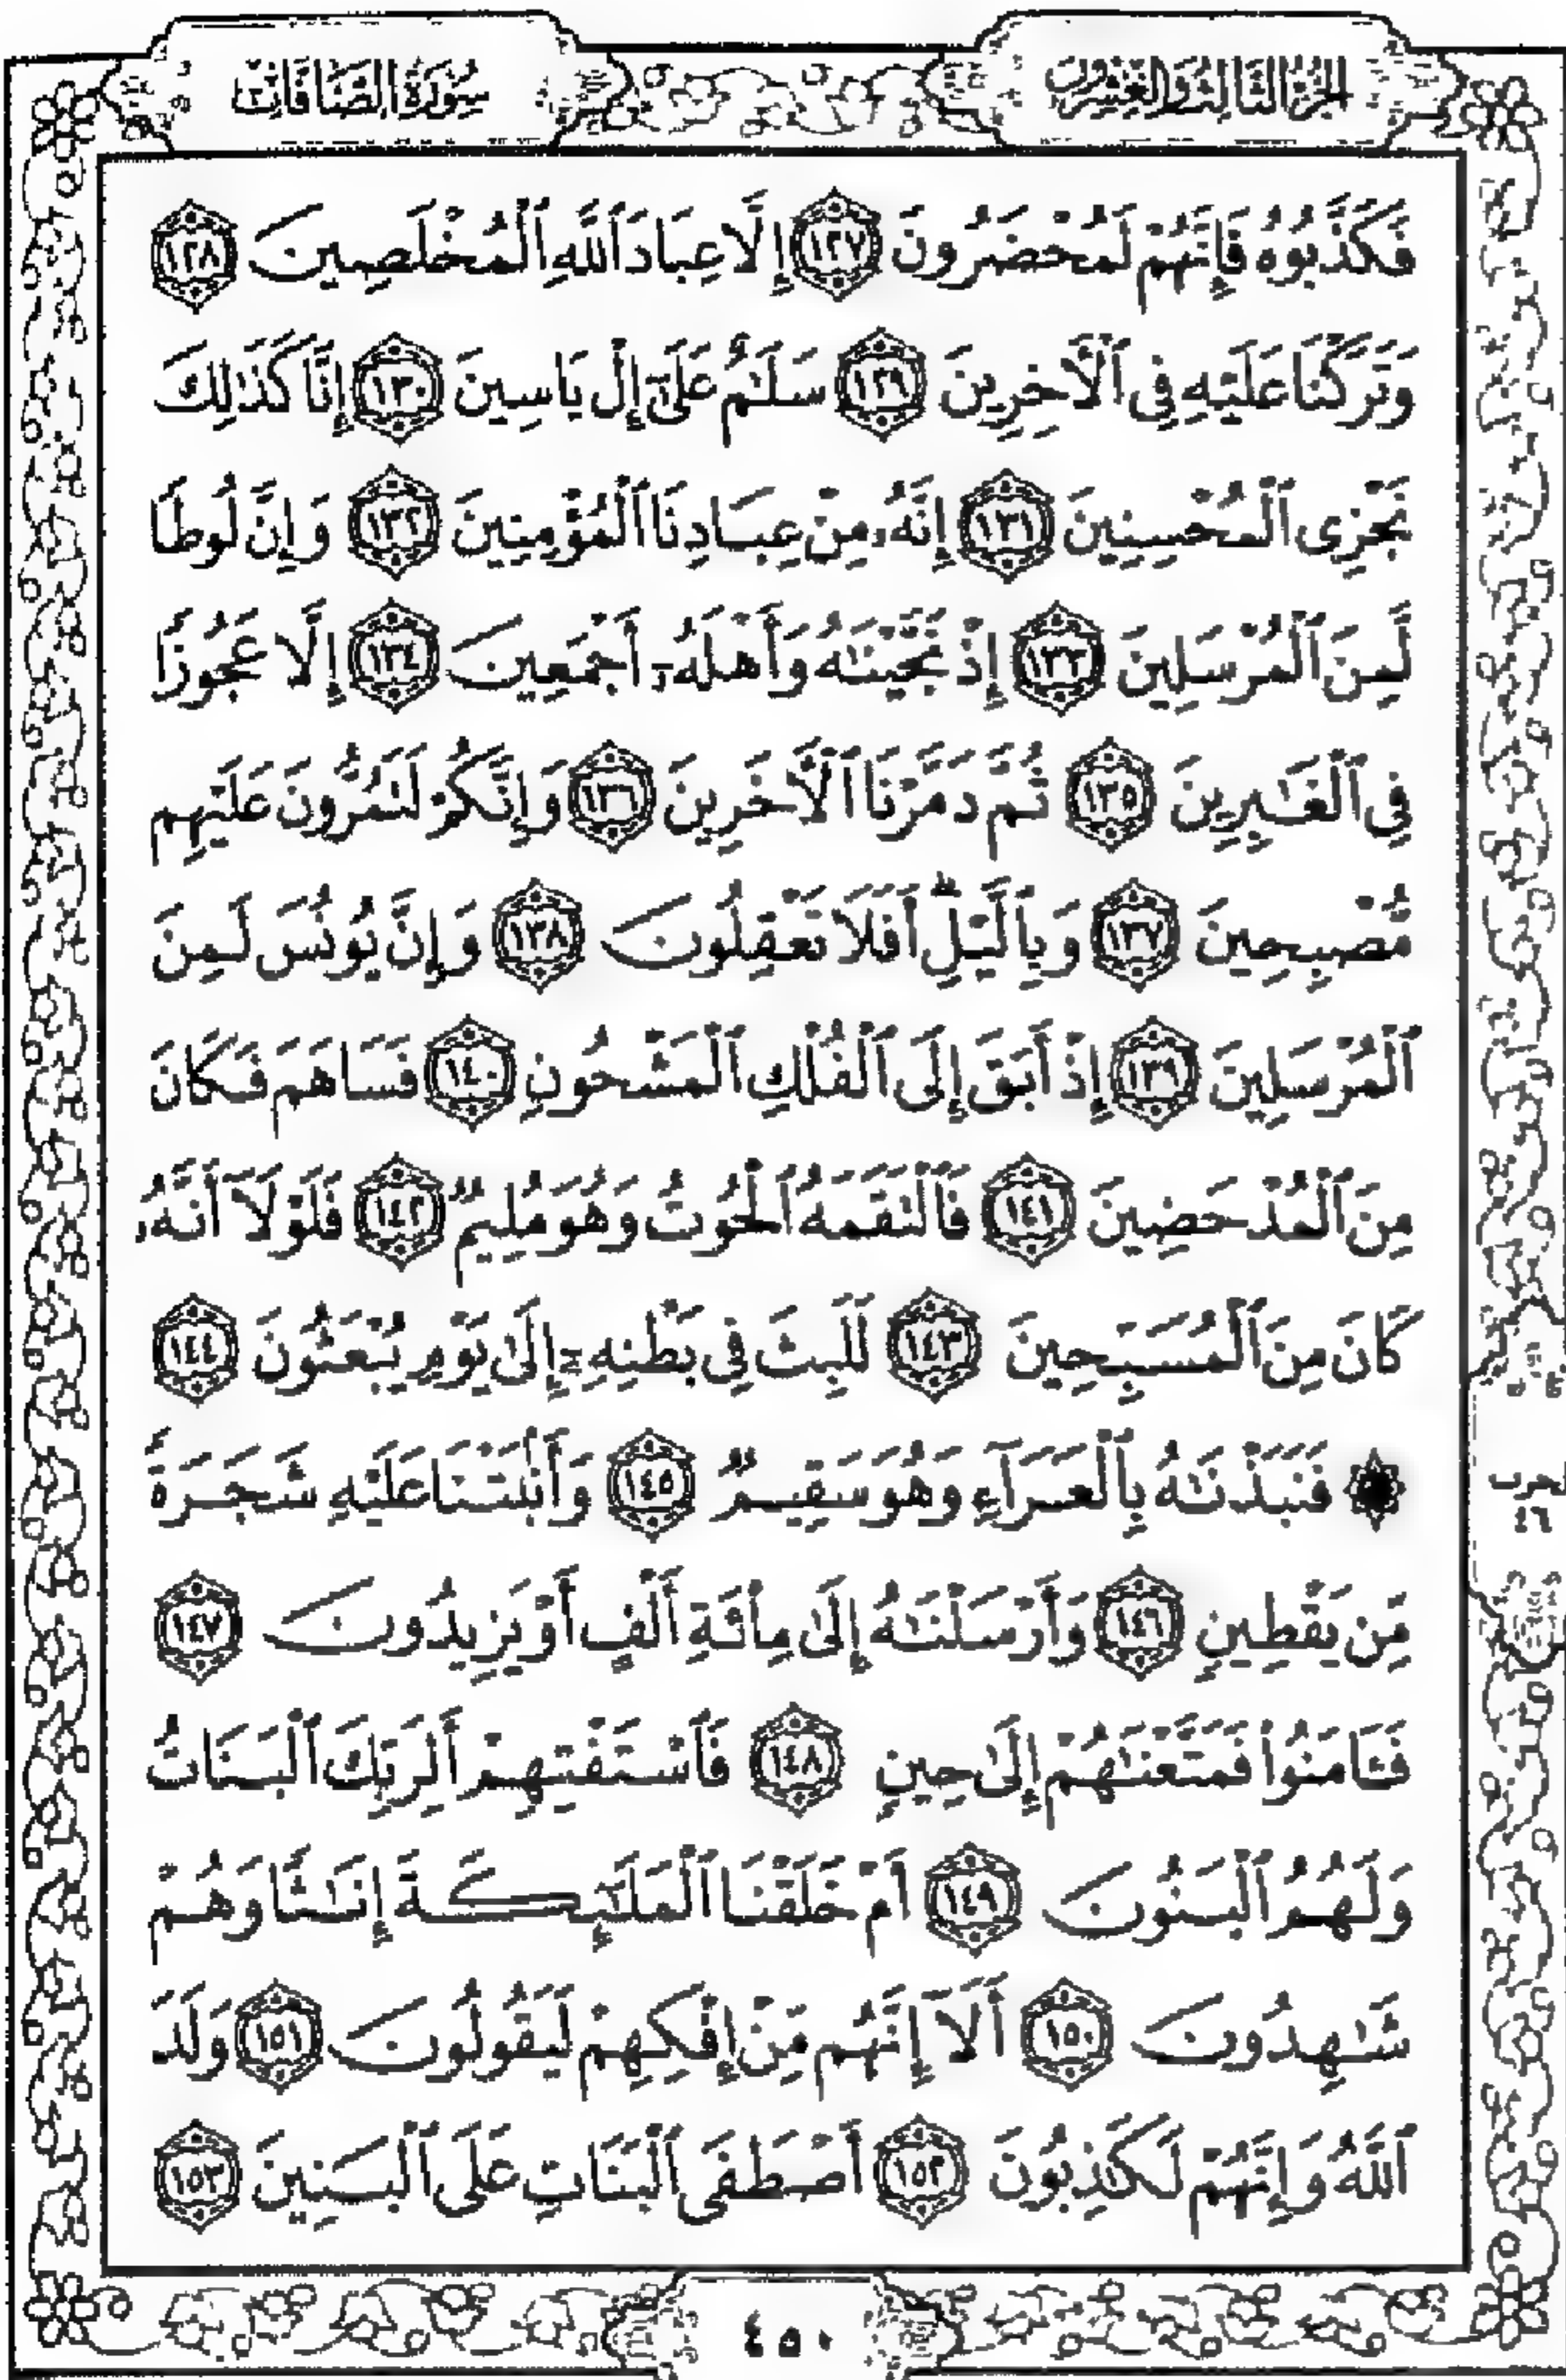 الجزء الثالث والعشرون
سورة الصافات
فَكَذَّبُوهُ فَإِنَّهُمْ لَمُحْضَرُونَ ١٢٧ إِلَّا عِبَادَ ٱللَّهِ ٱلْمُخْلَصِينَ ١٢٨
وَتَرَكْنَا عَلَيْهِ فِى ٱلْأَخِرِينَ ١٢٩ سَلَٰمٌ عَلَىٰٓ إِلْ يَاسِينَ ١٣٠ إِنَّا كَذَٰلِكَ
نَجْزِى ٱلْمُحْسِنِينَ ١٣١ إِنَّهُۥ مِنْ عِبَادِنَا ٱلْمُؤْمِنِينَ ١٣٢ وَإِنَّ لُوطًا
لَّمِنَ ٱلْمُرْسَلِينَ ١٣٣ إِذْ نَجَّيْنَٰهُ وَأَهْلَهُۥٓ أَجْمَعِينَ ١٣٤ إِلَّا عَجُوزًا
فِى ٱلْغَٰبِرِينَ ١٣٥ ثُمَّ دَمَّرْنَا ٱلْأَخَرِينَ ١٣٦ وَإِنَّكُمْ لَتَمُرُّونَ عَلَيْهِم
مُّصْبِحِينَ ١٣٧ وَبِٱلَّيْلِۗ أَفَلَا تَعْقِلُونَ ١٣٨ وَإِنَّ يُونُسَ لَمِنَ
ٱلْمُرْسَلِينَ ١٣٩ إِذْ أَبَقَ إِلَى ٱلْفُلْكِ ٱلْمَشْحُونِ ١٤٠ فَسَاهَمَ فَكَانَ
مِنَ ٱلْمُدْحَضِينَ ١٤١ فَٱلْتَقَمَهُ ٱلْحُوتُ وَهُوَ مُلِيمٌ ١٤٢ فَلَوْلَآ أَنَّهُۥ
كَانَ مِنَ ٱلْمُسَبِّحِينَ ١٤٣ لَلَبِثَ فِى بَطْنِهِۦٓ إِلَىٰ يَوْمِ يُبْعَثُونَ ١٤٤
۞ فَنَبَذْنَٰهُ بِٱلْعَرَآءِ وَهُوَ سَقِيمٌ ١٤٥ وَأَنۢبَتْنَا عَلَيْهِ شَجَرَةً
مِّن يَقْطِينٍ ١٤٦ وَأَرْسَلْنَٰهُ إِلَىٰ مِا۟ئَةِ أَلْفٍ أَوْ يَزِيدُونَ ١٤٧
فَـَٔامَنُوا۟ فَمَتَّعْنَٰهُمْ إِلَىٰ حِينٍ ١٤٨ فَٱسْتَفْتِهِمْ أَلِرَبِّكَ ٱلْبَنَاتُ
وَلَهُمُ ٱلْبَنُونَ ١٤٩ أَمْ خَلَقْنَا ٱلْمَلَٰٓئِكَةَ إِنَٰثًا وَهُمْ
شَٰهِدُونَ ١٥٠ أَلَآ إِنَّهُم مِّنْ إِفْكِهِمْ لَيَقُولُونَ ١٥١ وَلَدَ
ٱللَّهُ وَإِنَّهُمْ لَكَٰذِبُونَ ١٥٢ أَصْطَفَى ٱلْبَنَاتِ عَلَى ٱلْبَنِينَ ١٥٣
الحزب
٤٦
٤٥٠